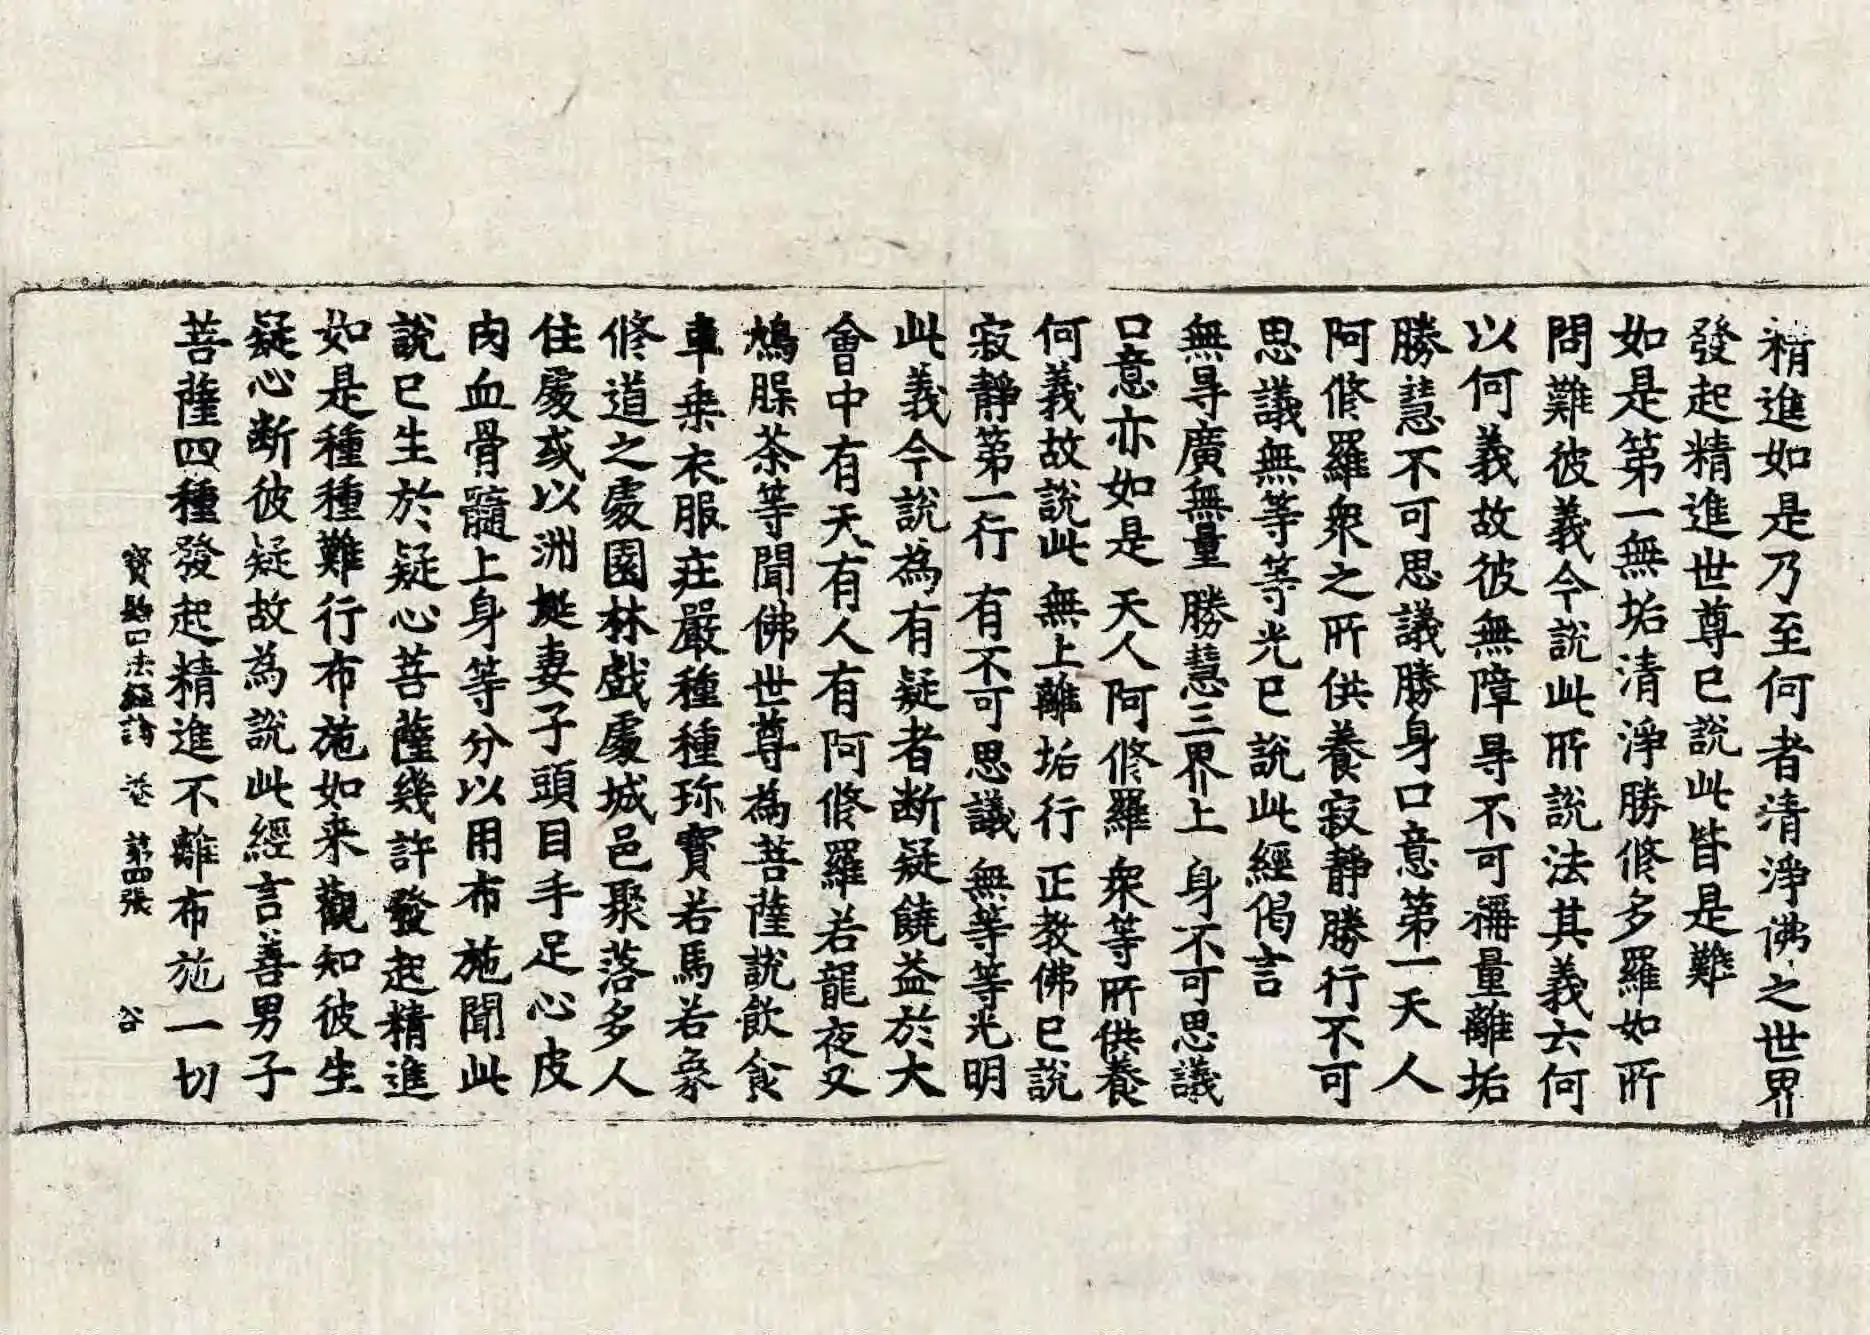 精進如是乃至何者清淨佛之世界
發起精進世尊已說此皆是難
如是第一無垢清淨勝修多羅如所
問難彼義今說此所說法其義云何
以何義故彼無障㝵不可稱量離垢
勝慧不可思議勝身口意第一天人
阿修羅衆之所供養寂靜勝行不可
思議無等等光已說此經偈言
無㝵廣無量 勝慧三界上 身不可思議
口意亦如是 天人阿修羅 衆等所供養
何義故說此 無上離垢行 正教佛已說
寂靜第一行 有不可思議 無等等光明
此義今說為有疑者断疑饒益於大
會中有天有人有阿修羅若龍夜叉
鳩腺茶等聞佛世尊為菩薩說飲食
車乗衣服莊嚴種種珎寶若馬若象
修道之處園林戯處城邑聚落多人
住處或以洲㳬妻子頭目手足心皮
肉血骨髓上身等分以用布施聞此
說已生於疑心菩薩幾許發起精進
如是種種難行布施如来觀知彼生
疑心断彼疑故為說此經言善男子
菩薩四種發起精進不離布施一切
寶髻口法經論 卷 第四張 谷